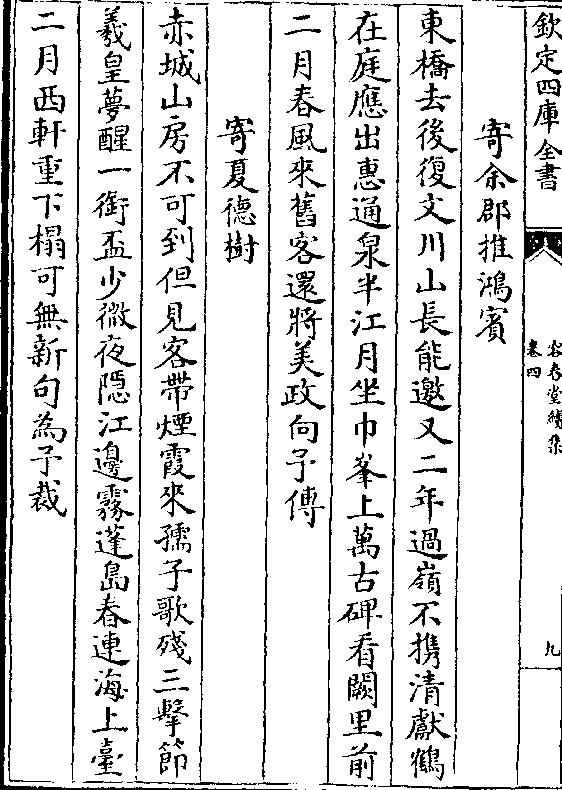 欽定四庫全書
容春堂續集
卷四
九
寄余郡推鴻賓
東橋去後復文川山長能邀又二年過嶺不攜清獻鶴
在庭應出惠通泉半江月坐巾峯上萬古碑看闕里前
二月春風來舊客還將美政向予傳
寄夏德樹
赤城山房不可到但見客帶煙霞來孺子歌殘三擊節
羲皇夢醒一銜盃少微夜隱江邊霧蓬島春連海上臺
二月西軒重下榻可無新句為予裁